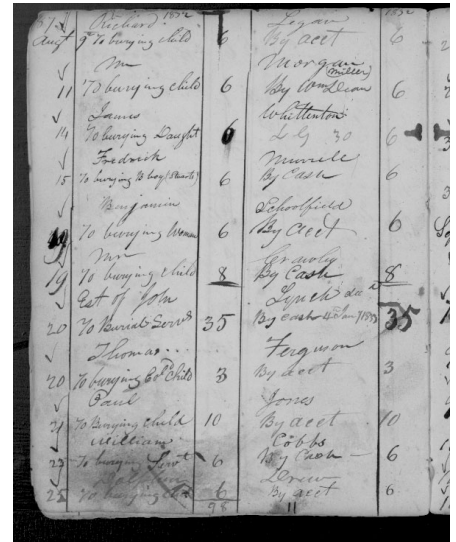 Richard 1852 Logan 1852
Augt 9 To burying child 6 By acct 6
Mr Morgan
11 To burying child 6 By Wm Dean (Miller) 6
James Whittenton
14 To burying Daught 6 L G 30 6
Fredrick Murrell
15 To burying B boy (Stuarts) 6 By Cash 6
Benjamin Schoolfield
19 To burying Woman 6 By acct 6
Mr Crawley
19 To burying child 8 By Cash 8
Est of John Lynch decd
20 To Burial Servs 35 By Cash 4 Jany 1853 35
Thomas Ferguson
20 To burying Cold Child 3 By acct 3
Paul Jones
21 To Burying child 10 By acct 10
William Cobbs
22 To burying Servt 6 By Cash 6
Drew
25 To burying 6 By acct 6
98 11